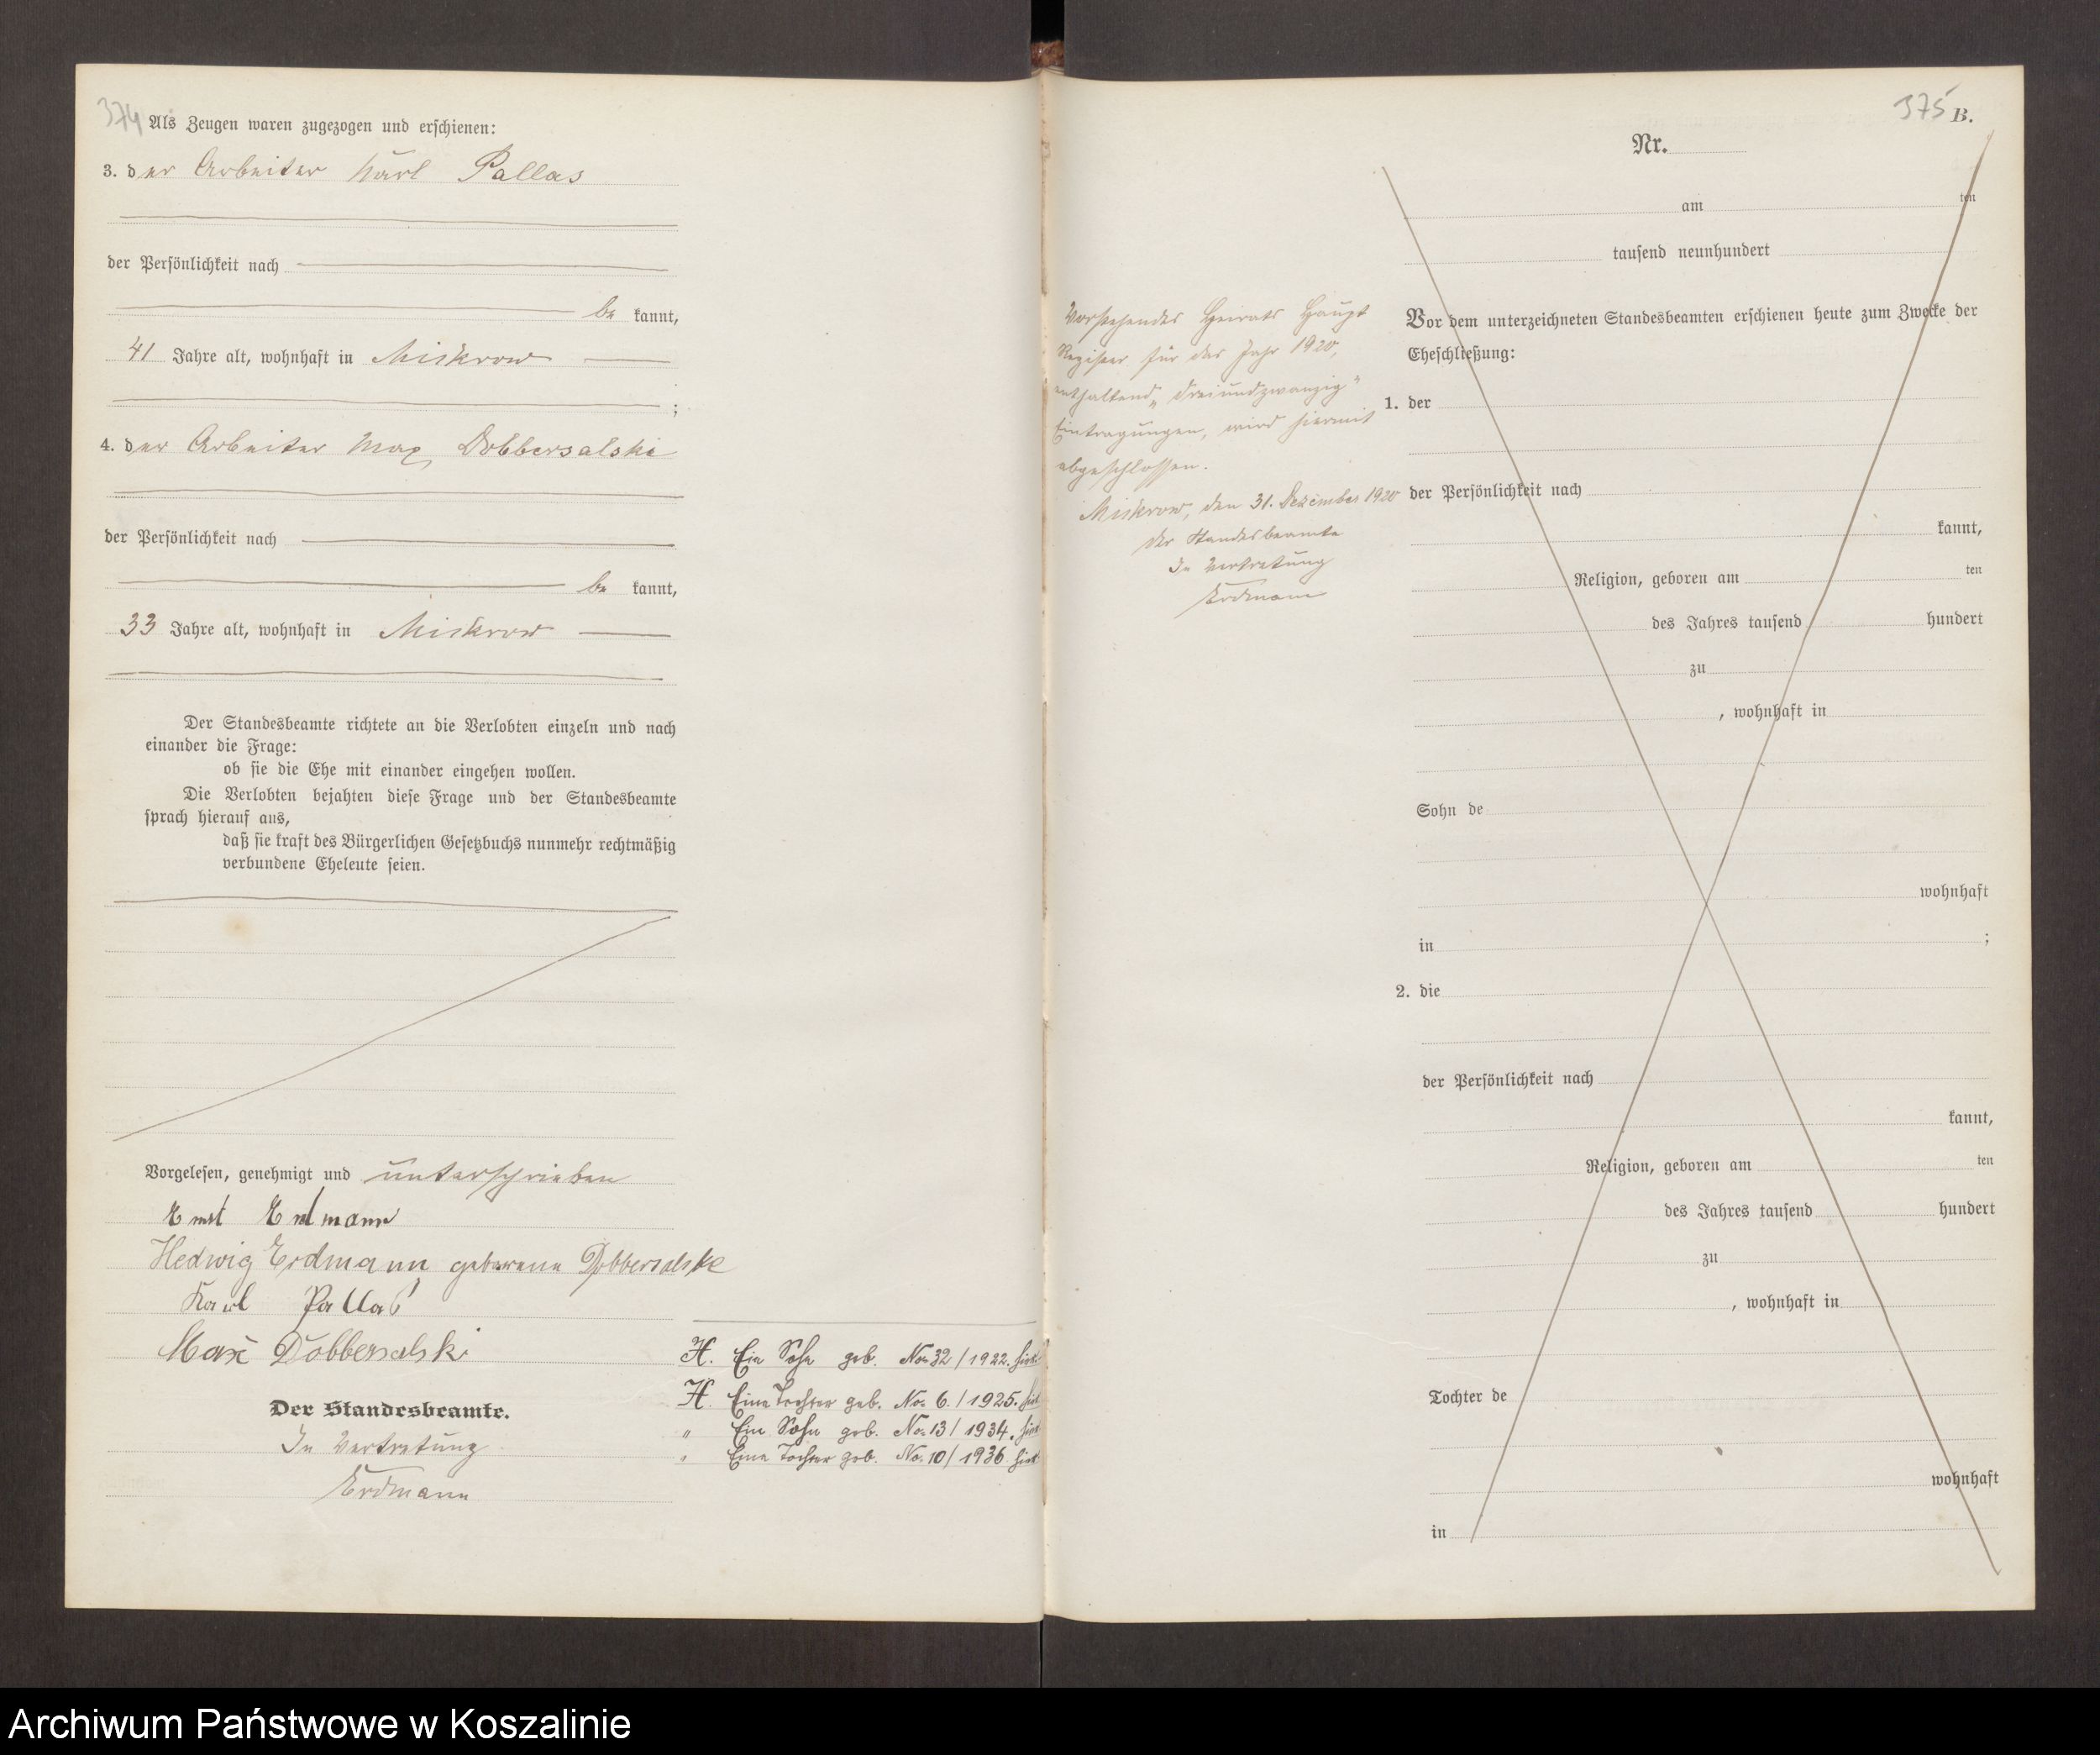 374
Als Zeugen waren zugezogen und erschienen:
3. der Arbeiter Karl Pallas
der Persönlichkeit nach
be kannt,
41 Jahre alt, wohnhaft in Miskrow
;
4. der Arbeiter Max Dobbersalski
der Persönlichkeit nach
be kannt,
33 Jahre alt, wohnhaft in Miskrow
Der Standesbeamte richtete an die Verlobten einzeln und nach
einander die Frage:
ob sie die Ehe mit einander eingehen wollen.
Die Verlobten bejahten diese Frage und der Standesbeamte
sprach hierauf aus,
daß sie kraft des Bürgerlichen Gesetzbuchs nunmehr rechtmäßig
verbundene Eheleute seien.
Vorgelesen, genehmigt und unterschrieben
Ernst Erdmann
Hedwig Erdmann geborene Dobbersalske
Karl Pallas
Max Dobbersalski
Der Standesbeamte.
In Vertretung
Erdmann
H. Ein Sohn geb. No. 32/1922. hier
H. Eine Tochter geb. No. 6./1925. hier
" Ein Sohn geb. No. 13/1934. hier
" Eine Tochter geb. No. 10/1936. hier
Vorstehendes Heirats Haupt
Register für das Jahr 1920,
enthaltend „dreiundzwanzig"
Eintragungen, wird hiermit
abgeschlossen.
Miskrow, den 31. Dezember 1920
Der Standesbeamte
In Vertretung
Erdmann
375
B.
Nr.
am ten
tausend neunhundert
Vor dem unterzeichneten Standesbeamten erschienen heute zum Zwecke der
Eheschließung:
1. der
der Persönlichkeit nach
kannt,
Religion, geboren am ten
des Jahres tausend hundert
zu
, wohnhaft in
Sohn de
wohnhaft
in ;
2. die
der Persönlichkeit nach
kannt,
Religion, geboren am ten
des Jahres tausend hundert
zu
, wohnhaft in
Tochter de
wohnhaft
in
Archiwum Państwowe w Koszalinie